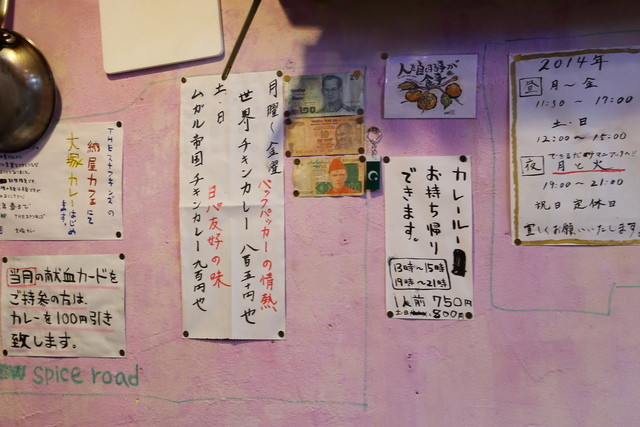 THEスナフキンズの
納屋カフェにて
大塚カレーはじめ
ます。
当月の献血カードを
ご持参の方は、
カレーを100円引き
致します。
spice road
月曜〜金曜
バックパッカーの情熱
世界チキンカレー 八百五十円也
土・日
日パ友好の味
ムガル帝国チキンカレー 九百円也
20
10
カレールー
お持ち帰り
できます。
13時〜15時
19時〜21時
1人前 750円
土・日 800円
2014年
昼 月〜金
11:30 〜 17:00
土・日
12:00 〜 15:00
夜 月と火
19:00 〜 21:00
祝日 定休日
宜しくお願いいたします。